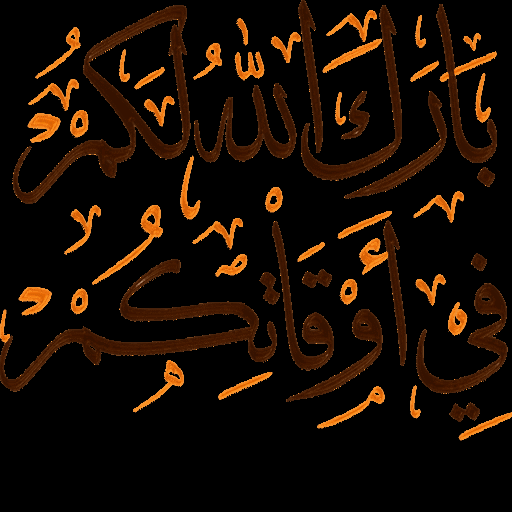 بَارَكَ اللهُ لَكُمْ
فِي أَوْقَاتِكُمْ